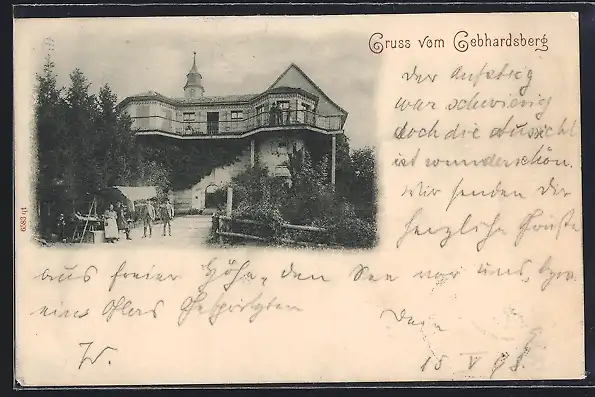 Gruss vom Gebhardsberg
Der Aufstieg
war schwierig
doch die Aussicht
ist wunderschön.
Wir senden Dir
herzliche Grüße
aus freier Höhe, den See vor uns,
ein Glas
W.
15 V 98.
6583 qt